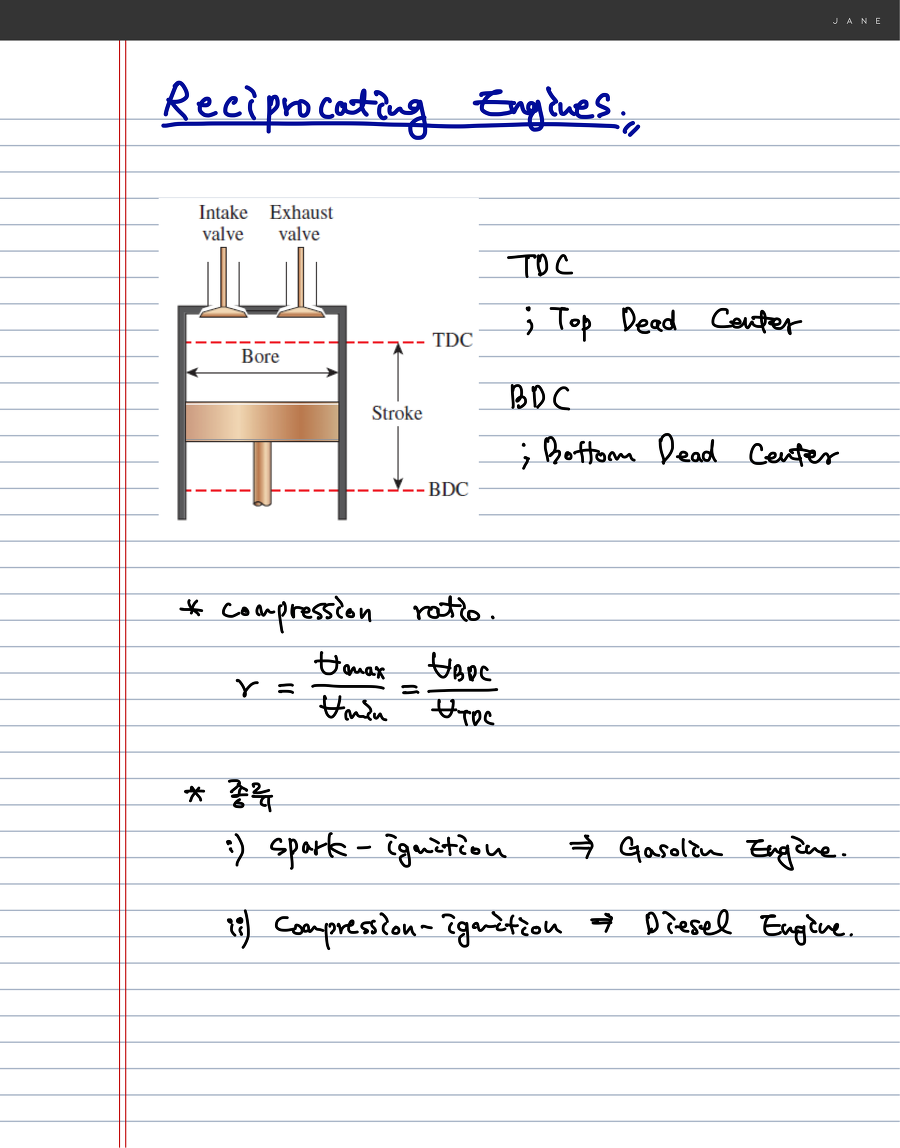 JANE
Reciprocating Engines.
Intake valve
Exhaust valve
TDC
Bore
Stroke
BDC
TDC
; Top Dead Center
BDC
; Bottom Dead Center
* compression ratio.
r = Vmax / Vmin = VBDC / VTDC
* 종류
i) spark-ignition ⇒ Gasolin Engine.
ii) compression-ignition ⇒ Diesel Engine.